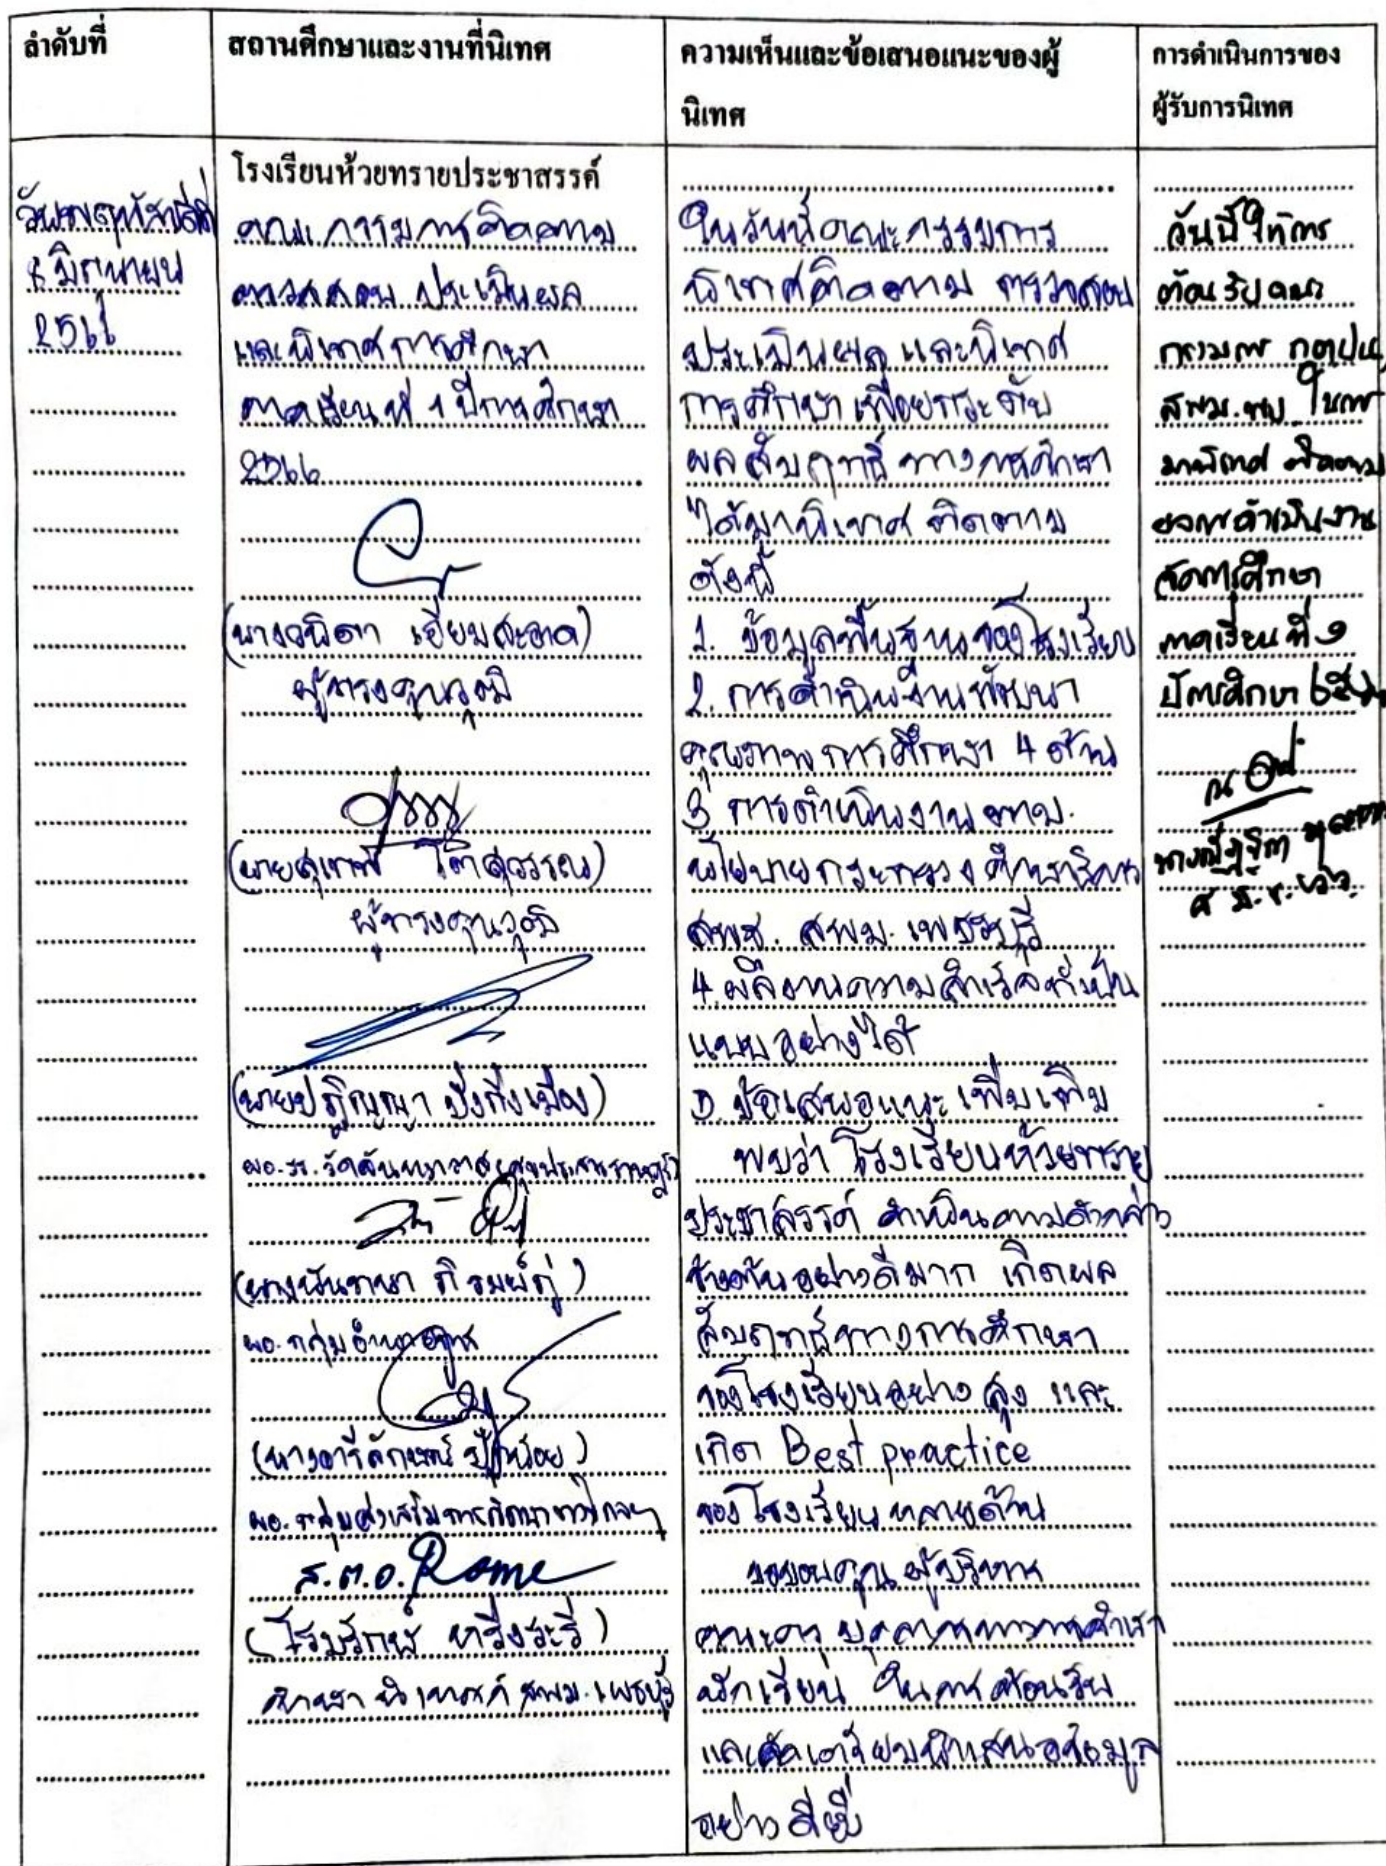 ลำดับที่
สถานศึกษาและงานที่นิเทศ
ความเห็นและข้อเสนอแนะของผู้
นิเทศ
การดำเนินการของ
ผู้รับการนิเทศ
วันพฤหัสบดีที่
8 มิถุนายน
2566
โรงเรียนห้วยทรายประชาสรรค์
คณะกรรมการติดตาม
ตรวจสอบ ประเมินผล
และนิเทศการศึกษา
ภาคเรียนที่ 1 ปีการศึกษา
2566
(นางวนิดา เอี่ยมสะอาด)
ผู้ทรงคุณวุฒิ
(นายสุเทพ โตสุวรรณ)
ผู้ทรงคุณวุฒิ
(นายปฏิญญา)
ผอ.รร.
(นางนันทนา ภิรมย์ภู่)
ผอ.กลุ่มอำนวยการ
(นางอารีลักษณ์)
ผอ.กลุ่มส่งเสริมการศึกษาทางไกลฯ
ส.ต.อ. Rome
(โรมรักษ์ หรึ่งระรี่)
ศึกษานิเทศก์ สพม.เพชรบุรี
ในวันนี้คณะกรรมการ
นิเทศติดตาม ตรวจสอบ
ประเมินผล และนิเทศ
การศึกษาเพื่อยกระดับ
ผลสัมฤทธิ์ทางการศึกษา
ได้มานิเทศ ติดตาม
ดังนี้
1. ข้อมูลพื้นฐานของโรงเรียน
2. การดำเนินงานพัฒนา
คุณภาพการศึกษา 4 ด้าน
3 การดำเนินงานตาม
นโยบายกระทรวงศึกษาธิการ
สพฐ. สพม.เพชรบุรี
4. ผลงานความสำเร็จที่เป็น
แบบอย่างได้
5. ข้อเสนอแนะเพิ่มเติม
พบว่า โรงเรียนห้วยทราย
ประชาสรรค์ ดำเนินตามดังกล่าว
ข้างต้นอย่างดีมาก เกิดผล
สัมฤทธิ์ทางการศึกษา
ของโรงเรียนอย่างสูง และ
เกิด Best practice
ของโรงเรียนหลายด้าน
ขอขอบคุณ ผู้บริหาร
คณะครู บุคลากรทางการศึกษา
นักเรียน ในการต้อนรับ
และจัดเตรียมนำเสนอข้อมูล
อย่างดียิ่ง
วันนี้ให้การ
ต้อนรับคณะ
กรรมการ กตปน.
สพม.พบ. ในการ
มานิเทศ ติดตาม
ผลการดำเนินงาน
จัดการศึกษา
ภาคเรียนที่ ๑
ปีการศึกษา ๒๕๖๖